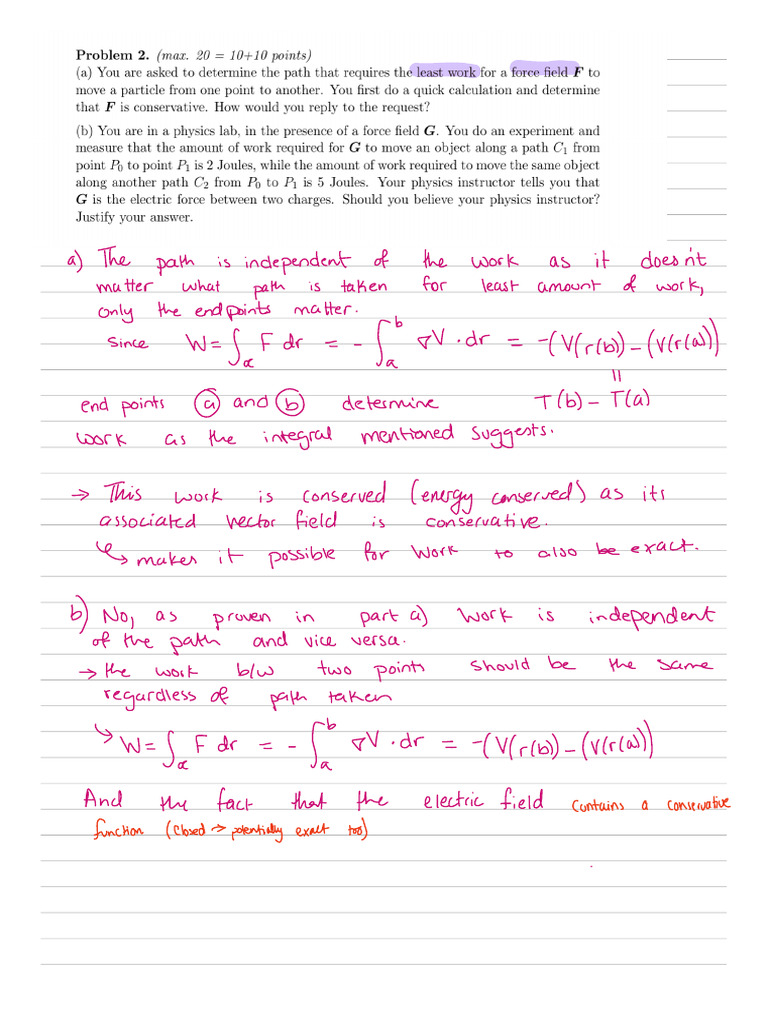 Problem 2. (max. 20 = 10+10 points)
(a) You are asked to determine the path that requires the least work for a force field F to
move a particle from one point to another. You first do a quick calculation and determine
that F is conservative. How would you reply to the request?
(b) You are in a physics lab, in the presence of a force field G. You do an experiment and
measure that the amount of work required for G to move an object along a path C₁ from
point P₀ to point P₁ is 2 Joules, while the amount of work required to move the same object
along another path C₂ from P₀ to P₁ is 5 Joules. Your physics instructor tells you that
G is the electric force between two charges. Should you believe your physics instructor?
Justify your answer.
a) The path is independent of the work as it doesn't
matter what path is taken for least amount of work,
only the endpoints matter.
Since W = ∫_α F dr = - ∫_a^b ∇V · dr = -(V(r(b)) - (V(r(a))
=
end points (a) and (b) determine T(b) - T(a)
work as the integral mentioned suggests.
→ This work is conserved (energy conserved) as its
associated vector field is conservative.
↳ makes it possible for work to also be exact.
b) No, as proven in part a) work is independent
of the path and vice versa.
→ the work b/w two points should be the same
regardless of path taken
↳ W = ∫_α F dr = - ∫_a^b ∇V · dr = -(V(r(b)) - (V(r(a))
And the fact that the electric field contains a conservative
function (closed → potentially exact too)